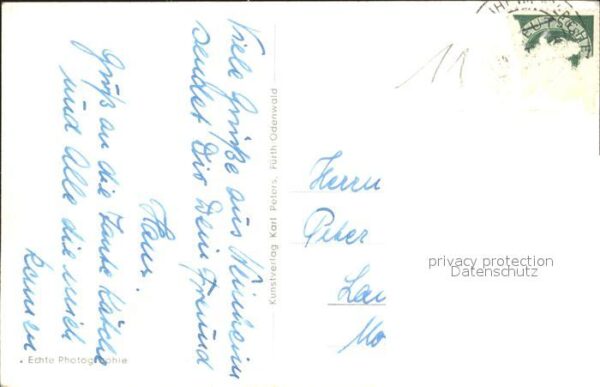 Viele Grüße aus Weinheim
sendet Dir Dein Freund
Hans.
Gruß an die Tante Kätche
und Alle die mich
kennen
Echte Photographie
Kunstverlag Karl Peters, Fürth Odenwald
11
Herrn
Peter
Lau
Mo
privacy protection
Datenschutz